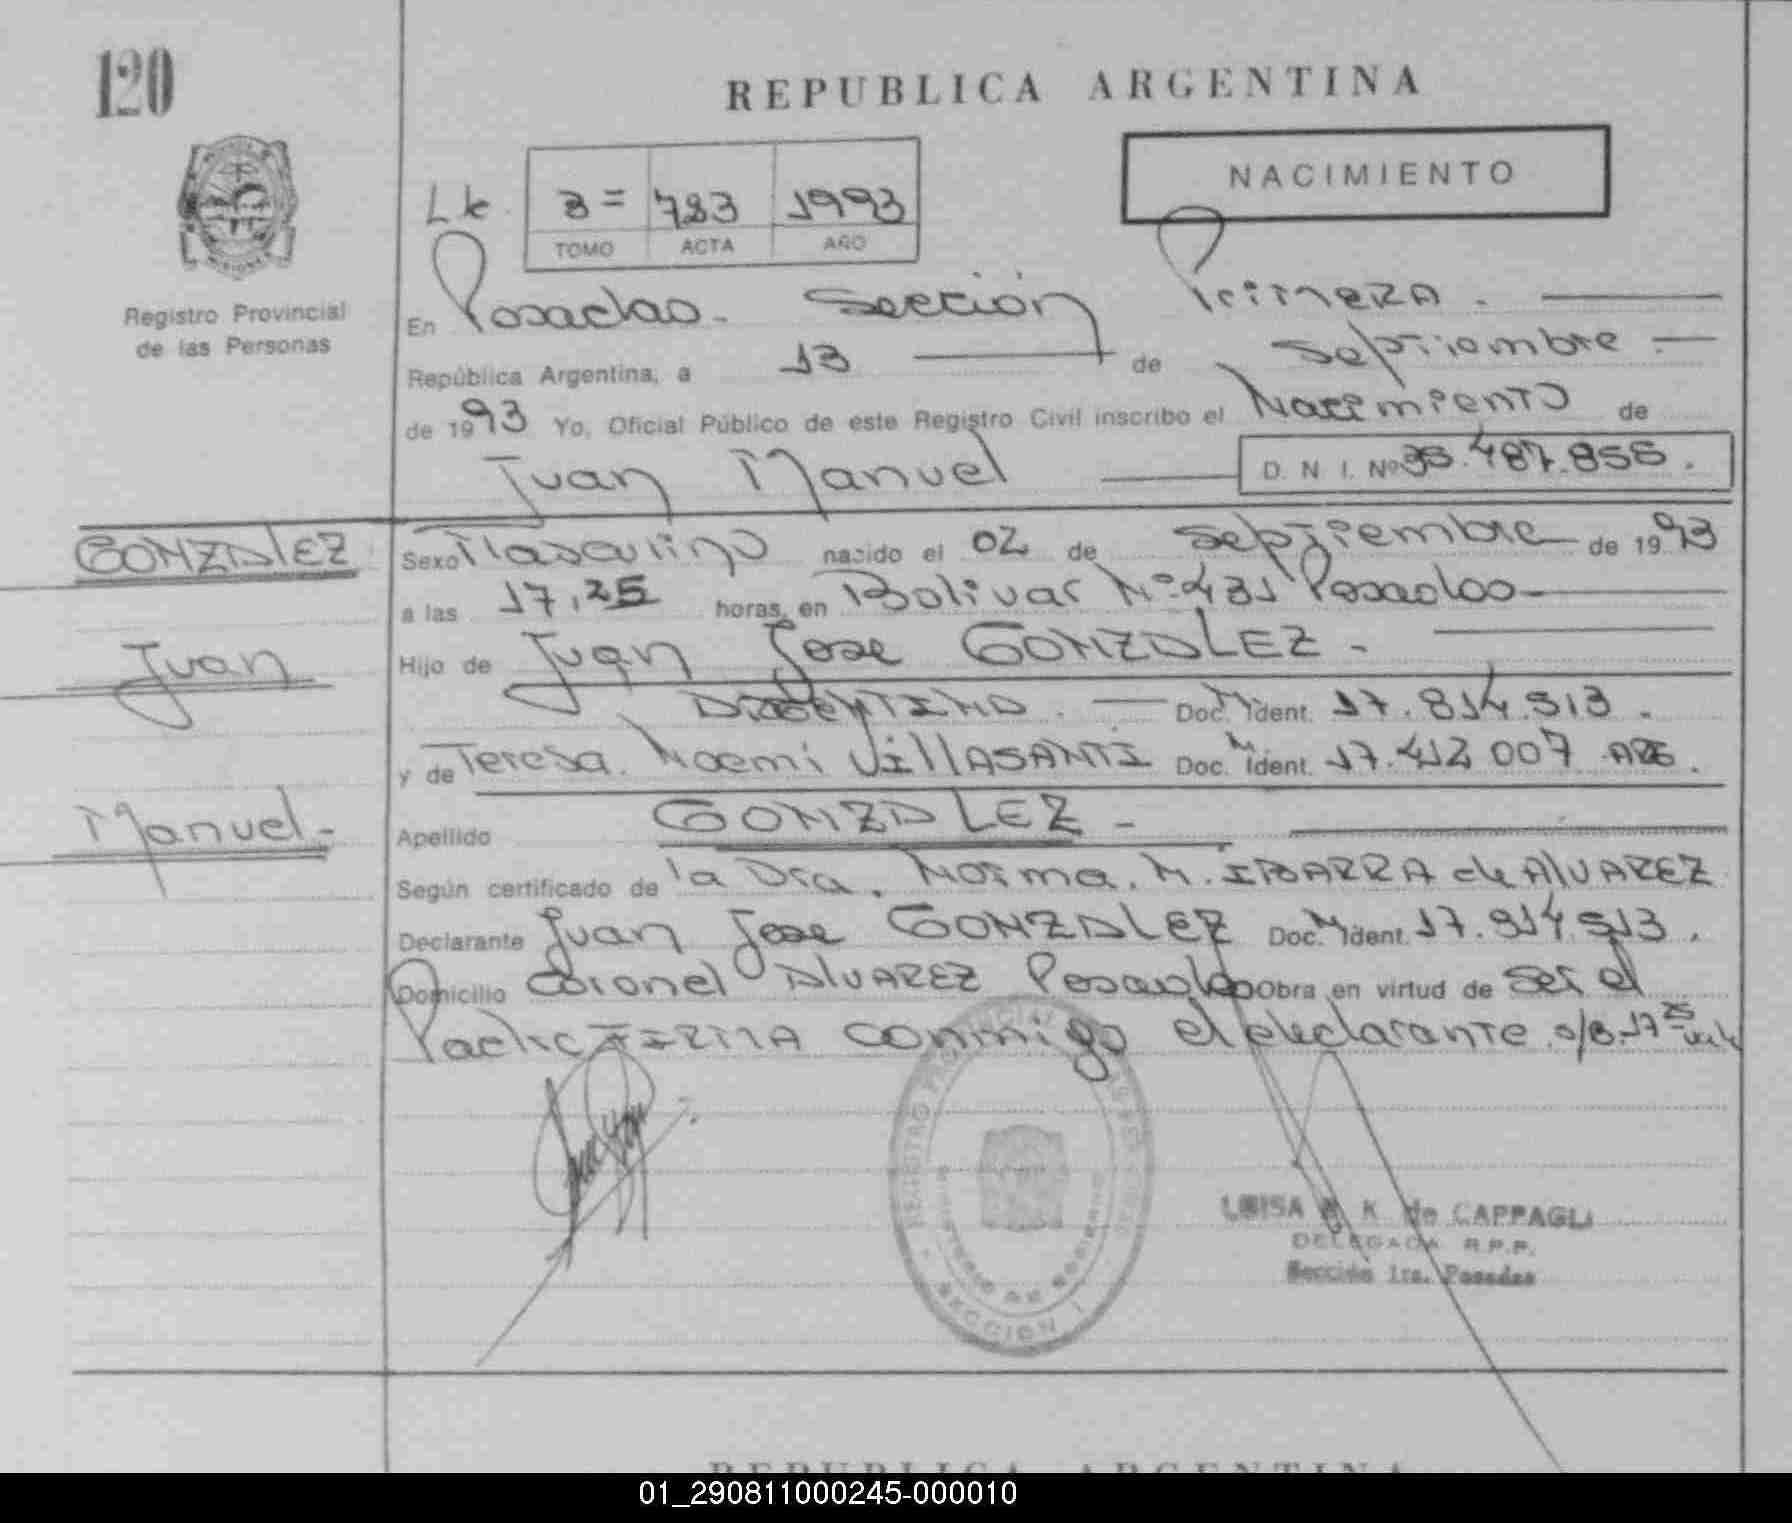 120
REPUBLICA ARGENTINA
NACIMIENTO
3= 783 1993
TOMO ACTA AÑO
Registro Provincial
de las Personas
En Posadas. Sección Primera.
República Argentina, a 13 de Septiembre
de 1993 Yo, Oficial Público de este Registro Civil inscribo el Nacimiento de
Juan Manuel D. N. I. Nº 487.
GONZALEZ
Sexo Masculino nacido el 02 de Septiembre de 1993
a las 17,25 horas, en Bolivar Nº 431 Posadas
Juan
Hijo de Juan Jose GONZALEZ.
ARGENTINO. Doc. M Ident. 17.814.513.
y de Teresa Noemi VillASANTI Doc. M Ident. 17.412.007 ARG.
Manuel
Apellido GONZALEZ
Según certificado de la Dra. Norma. M. IBARRA de AlVAREZ
Declarante Juan Jose GONZALEZ Doc. M Ident. 17.814.513.
Domicilio Coronel AlVAREZ Posadas Obra en virtud de ser el
Padre FIRMA conmigo el declarante
REGISTRO PROVINCIAL
SECCION 1
LUISA K de CAPPAGLI
DELEGADA R.P.P.
Sección 1ra. Posadas
REPUBLICA ARGENTINA
01_290811000245-000010